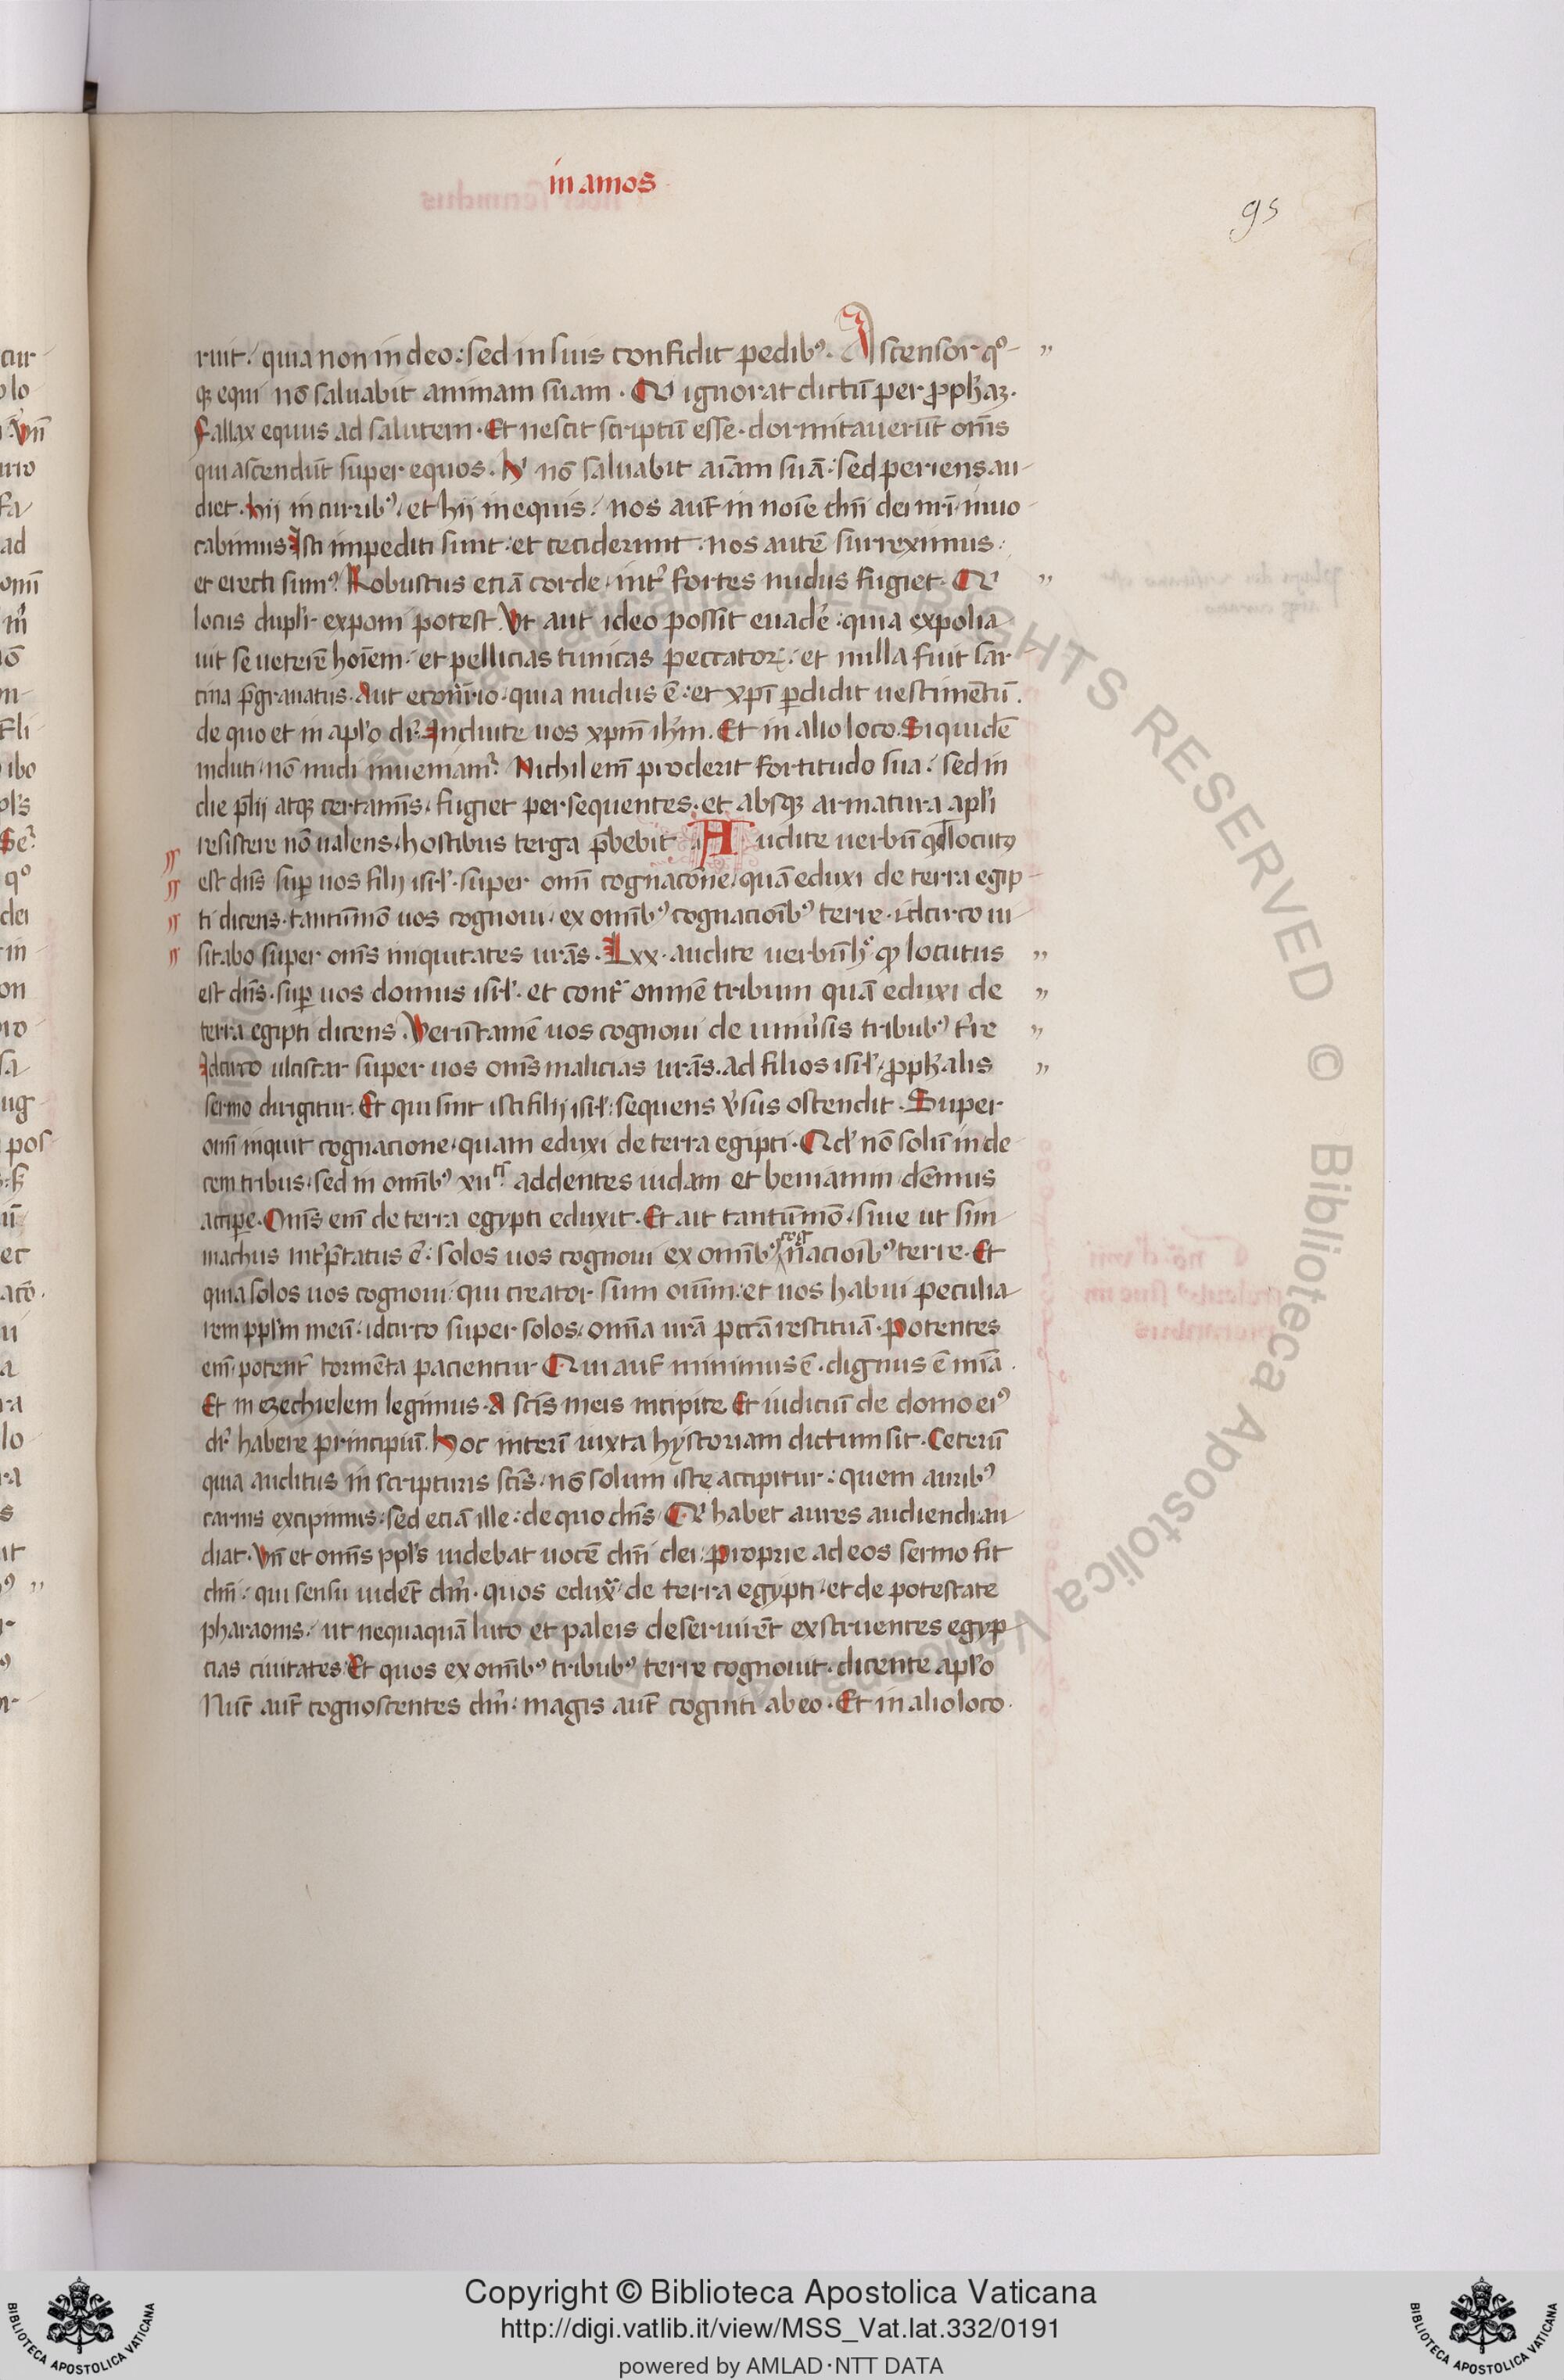 in amos
95
ruit. quia non in deo: sed in suis confidit pedib⁹. Ascensor q°
qꝫ equi nō saluabit animam suam. Qi ignorat dictū per ꝓpħaꝫ.
fallax equus ad salutem. Et nescit scriptū esse. dormitauerūt om̄s
qui ascendūt super equos. H nō saluabit aīam suā: sed periens au
diet. hij in curib⁹. et hij in equis. nos aut̄ in noīe dn̄i dei nr̄i inuo
cabimus Isti impediti sunt: et ceciderunt. nos autē surreximus:
et erecti sum⁹. Robustus eciā corde. int̉ fortes nudus fugiet. Qi
locus dupl̉r exponi potest. Vt aut ideo possit euadē: quia expolia
uit se ueterē hoīem. et pellicias tunicas peccatoꝝ. et nulla fuit sar
cina p̄grauatus. Aut econ̄rio. quia nudus ē. et xp̄i ꝑdidit uestimētū.
de quo et in apl̉o dr̄. Induite uos xpm̄ ih̄m. Et in alio loco. Siquidē
induti. nō nudi inueniamr̉. Nichil em̄ proderit fortitudo sua. sed in
die p̄lij atqꝫ certamīs. fugiet persequentes. et absqꝫ armatura apl̉i
resistere nō ualens. hostibus terga p̄bebit. Audite uerbū qd̄ locut⁹
est dn̄s suꝑ uos filij isrl̉. super omī cognacōne. quā eduxi de terra egip
ti dicens. tantūmō uos cognoui. ex omīb⁹ cognacioīb⁹ terre. idcirco ui
sitabo super om̄s iniquitates urās. Lxx. audite uerbū h° qꝫ locutus
est dn̄s. suꝑ uos domus isrl̉. et cont̉ omnē tribum quā eduxi de
terra egipti dicens. Verūtamē uos cognoui de uniu̓sis tribub⁹ t̄re
Idcirco ulciscar super uos om̄s malicias urās. ad filios isrl̉. ꝓpħalis
sermo dirigitur. Et qui sint isti filij isrl̉: sequens v̓sus ostendit. Super
omī inquit cognacione. quam eduxi de terra egipti. Qd̓ nō solū in de
cem tribus. sed in omīb⁹ xii. addentes iudam et beniamin dēmus
acciꝑe. Om̄s em̄ de terra egypti eduxit. Et ait tantūmō. siue ut sim
machus int̉p̄tatus ē: solos uos cognoui ex omīb⁹ cognacioīb⁹ terre. Et
quia solos uos cognoui: qui creator sum oīum. et uos habui peculia
rem ppl̉m meū. idcirco super solos. omīa urā pcc̄a restituā. Potentes
em̄. potent̉ tormēta pacientur Qui aut̄ minimus ē. dignus ē mīa.
Et in ezechielem legimus. A sc̄is meis incipite Et iudiciū de domo ei⁹
dr̄ habere principiū. Hoc interī iuxta hystoriam dictum sit. Ceterū
quia auditus in scripturis sc̄is. nō solum iste accipitur. quem aurib⁹
carnis excipimus. sed eciā ille: de quo dn̄s. Qi habet aures audiendi au
diat. Vn̄ et om̄s ppl̉s uidebat uocē dn̄i dei. Proprie ad eos sermo fit
dn̄i. qui sensu uidēt dm̄. quos edux̉ de terra egypti. et de potestate
pharaonis. ut nequaquā luto et paleis deseruirēt exstruentes egyp
cias ciuitates Et quos ex omīb⁹ tribub⁹ terre cognouit. dicente apl̉o
Nūc aut̄ cognoscentes dm̄. magis aut̄ cogniti ab eo. Et in alio loco.
ALL RIGHTS RESERVED © Biblioteca Apostolica Vaticana
Copyright © Biblioteca Apostolica Vaticana
http://digi.vatlib.it/view/MSS_Vat.lat.332/0191
powered by AMLAD·NTT DATA
BIBLIOTECA APOSTOLICA VATICANA
BIBLIOTECA APOSTOLICA VATICANA